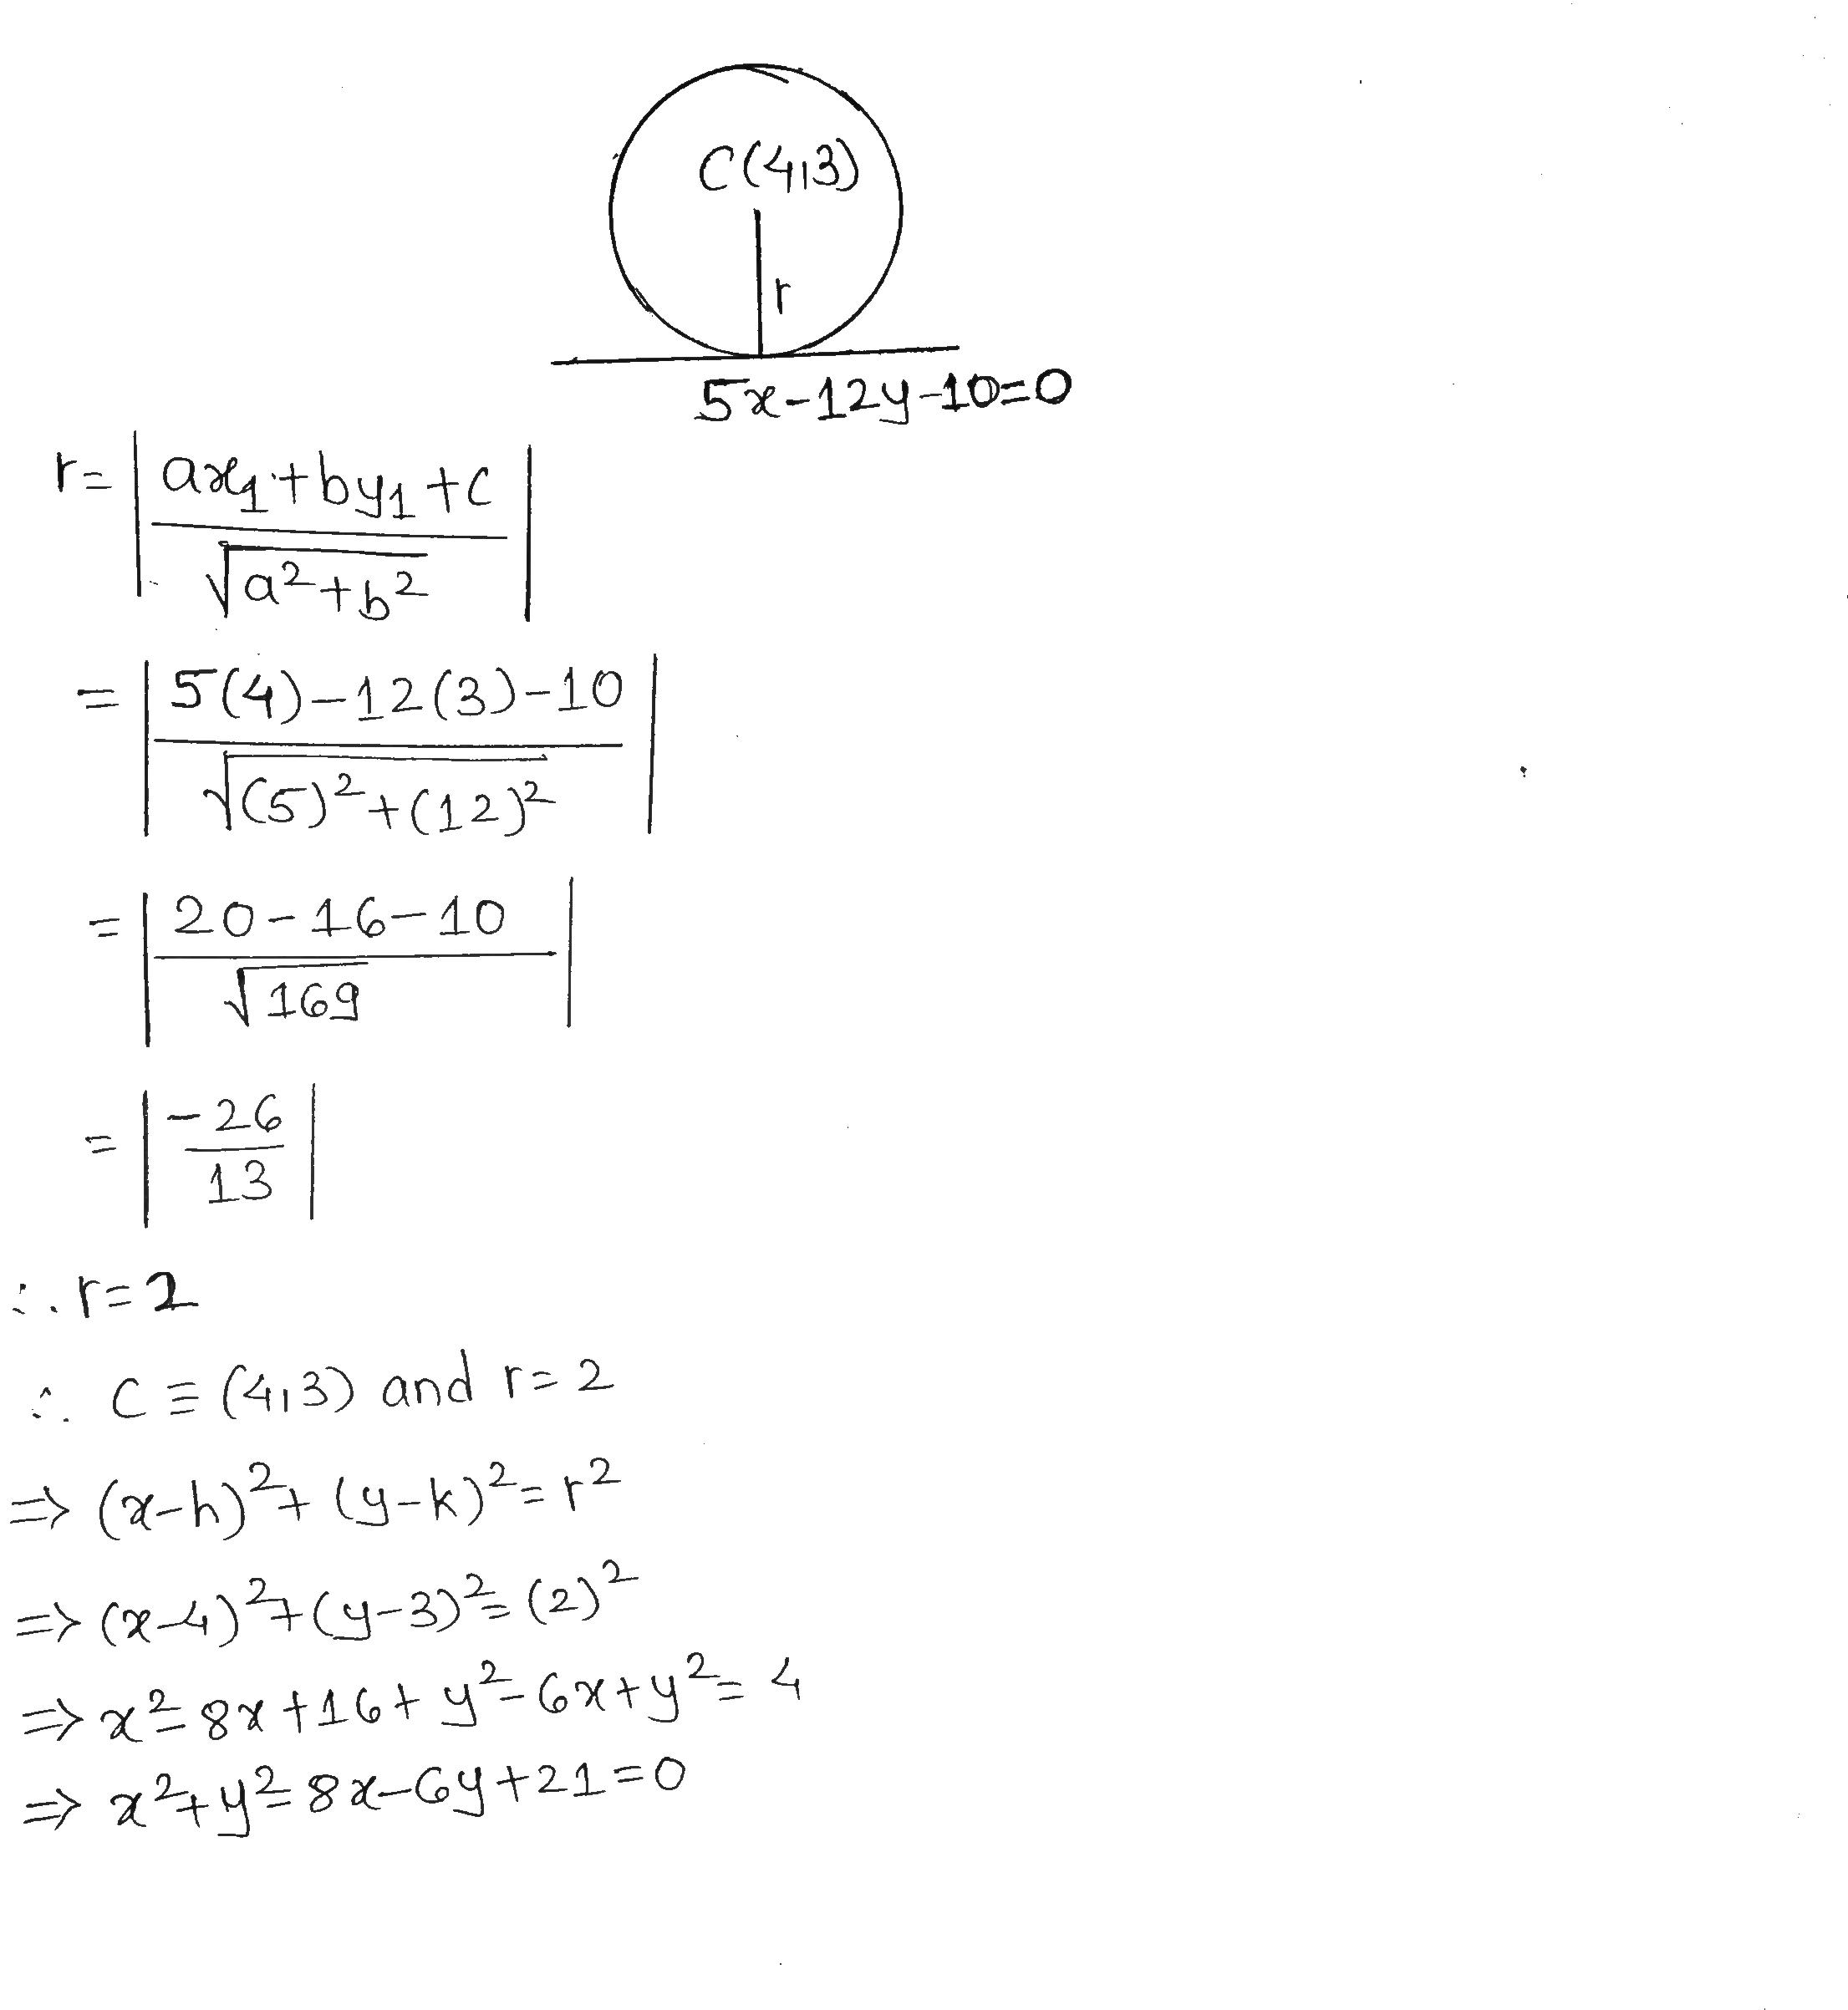 C(4,3)
r
5x-12y-10=0
r= | ax₁+by₁+c / √a²+b² |
= | 5(4)-12(3)-10 / √(5)²+(12)² |
= | 20-16-10 / √169 |
= | -26 / 13 |
∴ r=2
∴ C≡(4,3) and r=2
⇒ (x-h)²+(y-k)²=r²
⇒ (x-4)²+(y-3)²=(2)²
⇒ x²-8x+16+y²-6x+y²=4
⇒ x²+y²-8x-6y+21=0